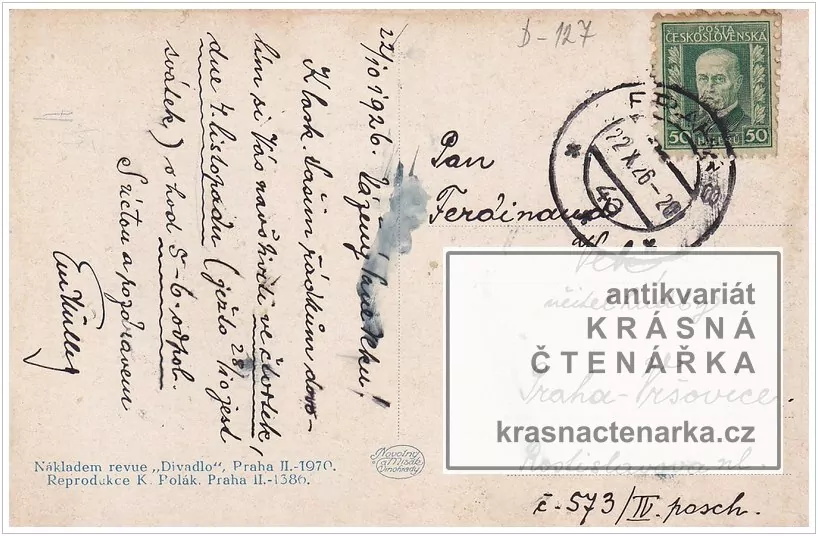 D-127
POŠTA
ČESKOSLOVENSKÁ
50 HALÉŘŮ 50
22.X.26-20
4a
22/10 1926. Vážený
Klask. Vašim řádkům dovo-
lím si Vás navštíviti ve čtvrtek,
dne 4. listopadu (ježto 28/10 jest
svátek) o hod 5-6. odpol.
S úctou a pozdravem
Pan
Ferdinand
antikvariát
KRÁSNÁ
ČTENÁŘKA
krasnactenarka.cz
Praha-Vršovice
Rostislavova ul.
č. 573/IV. posch.
Novotný
a Misák
Vinohrady
Nákladem revue „Divadlo“, Praha II.-1970.
Reprodukce K. Polák, Praha II.-1386.